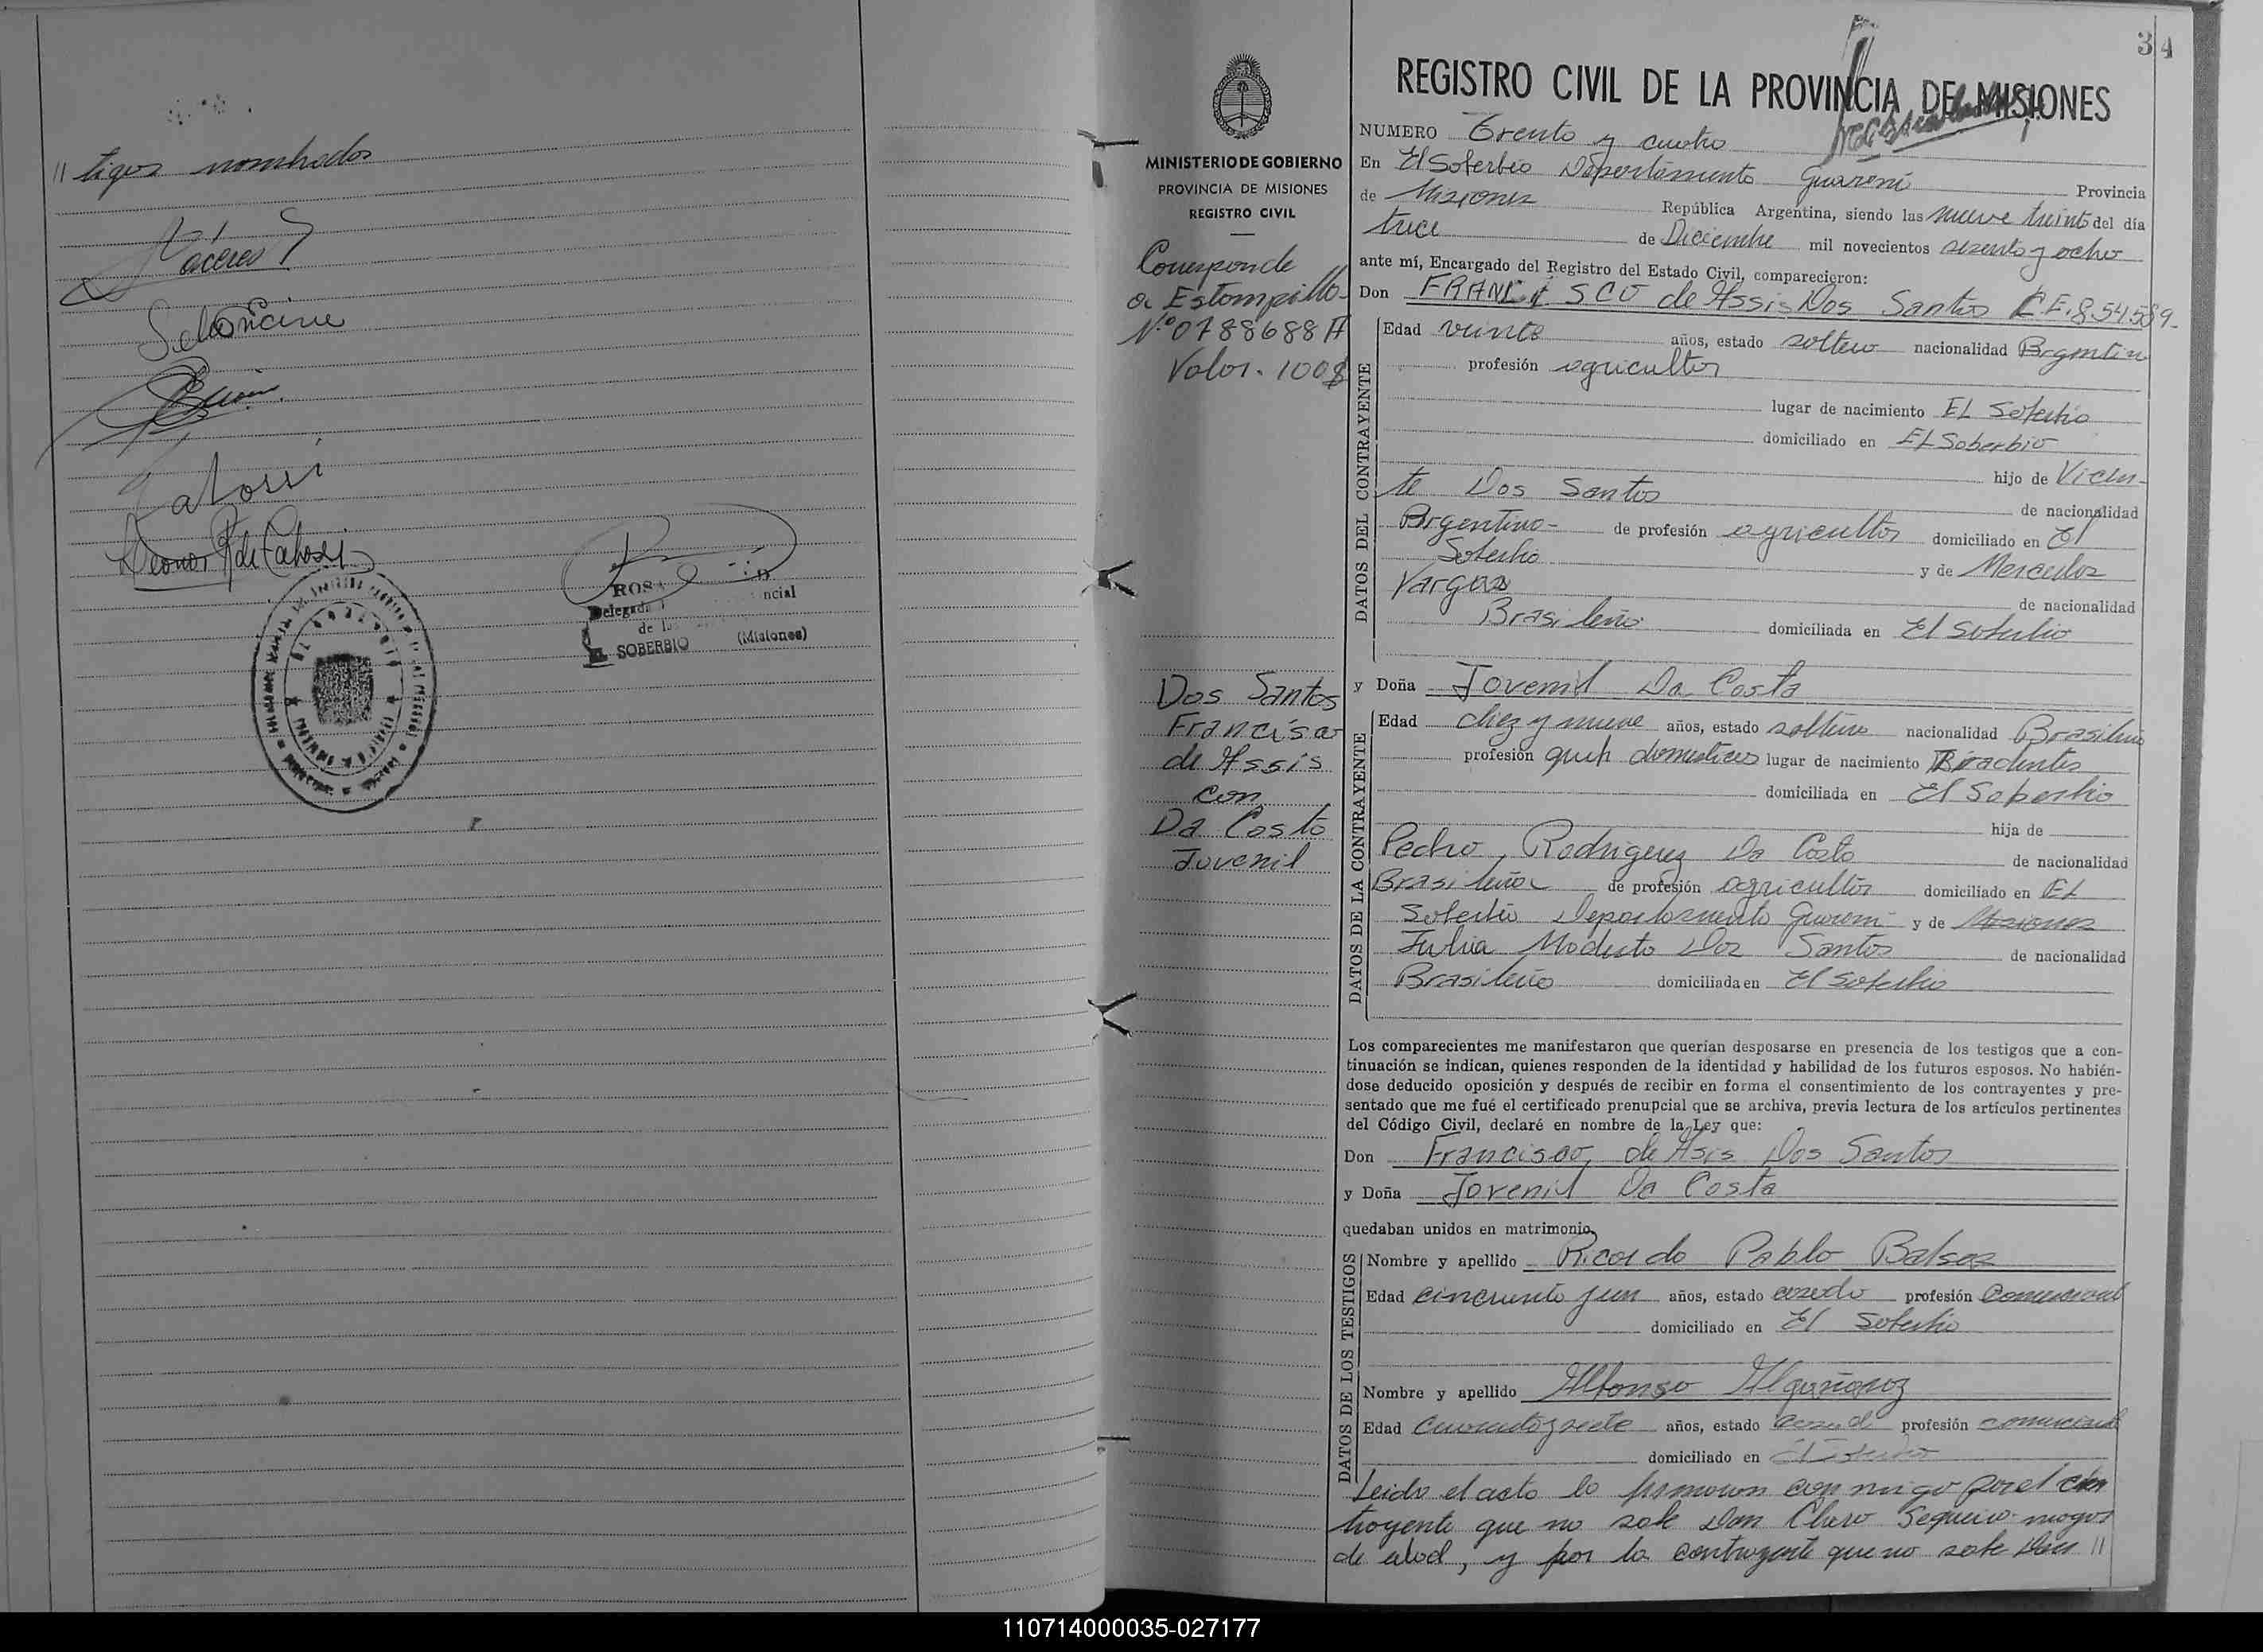 // tigos nombrados
Cáceres
ROSA
Delegada ncial
de la
SOBERBIO (Misiones)
34
REGISTRO CIVIL DE LA PROVINCIA DE MISIONES
MINISTERIO DE GOBIERNO
PROVINCIA DE MISIONES
REGISTRO CIVIL
Corresponde
a Estampilla
N.º 0788688 A
Valor. 100$
Dos Santos
Francisco
de Assis
con
Da Costa
Jovenil
NUMERO Trenta y cuatro
En El Soberbio Departamento Guaraní Provincia
de Misiones República Argentina, siendo las nueve treinta del día
trece de Diciembre mil novecientos sesenta y ocho
ante mí, Encargado del Registro del Estado Civil, comparecieron:
Don FRANCISCO de Assis Dos Santos C.E. 8.541.589.
DATOS DEL CONTRAYENTE
Edad veinte años, estado soltero nacionalidad Argentino
profesión agricultor
lugar de nacimiento EL Soberbio
domiciliado en El Soberbio
hijo de Vicen-
te Dos Santos de nacionalidad
Argentino- de profesión agricultor domiciliado en El
Soberbio y de Mercedes
Vargas de nacionalidad
Brasileña domiciliada en El Soberbio
y Doña Jovenil Da Costa
DATOS DE LA CONTRAYENTE
Edad diez y nueve años, estado soltera nacionalidad Brasileña
profesión queh domesticos lugar de nacimiento Tiradentes
domiciliada en El Soberbio
hija de
Pedro Rodriguez Da Costa de nacionalidad
Brasileña de profesión agricultor domiciliado en EL
Soberbio Departamento Guarani y de Misiones
Julia Modesta Dos Santos de nacionalidad
Brasileña domiciliada en El Soberbio
Los comparecientes me manifestaron que querían desposarse en presencia de los testigos que a con-
tinuación se indican, quienes responden de la identidad y habilidad de los futuros esposos. No habién-
dose deducido oposición y después de recibir en forma el consentimiento de los contrayentes y pre-
sentado que me fué el certificado prenupcial que se archiva, previa lectura de los artículos pertinentes
del Código Civil, declaré en nombre de la Ley que:
Don Francisco de Asis Dos Santos
y Doña Jovenil Da Costa
quedaban unidos en matrimonio
DATOS DE LOS TESTIGOS
Nombre y apellido Ricardo Pablo Balsaz
Edad cincuenta y un años, estado casado profesión Comercial
domiciliado en El Soberbio
Nombre y apellido Alfonso
Edad Cuarenta y siete años, estado casad profesión comercial
domiciliado en El Soberbio
Leida el acta la firmaron con migo por el con
trayente que no sabe Don Claro Sequeira mayor
de edad, y por la contrayente que no sabe Don //
110714000035-027177